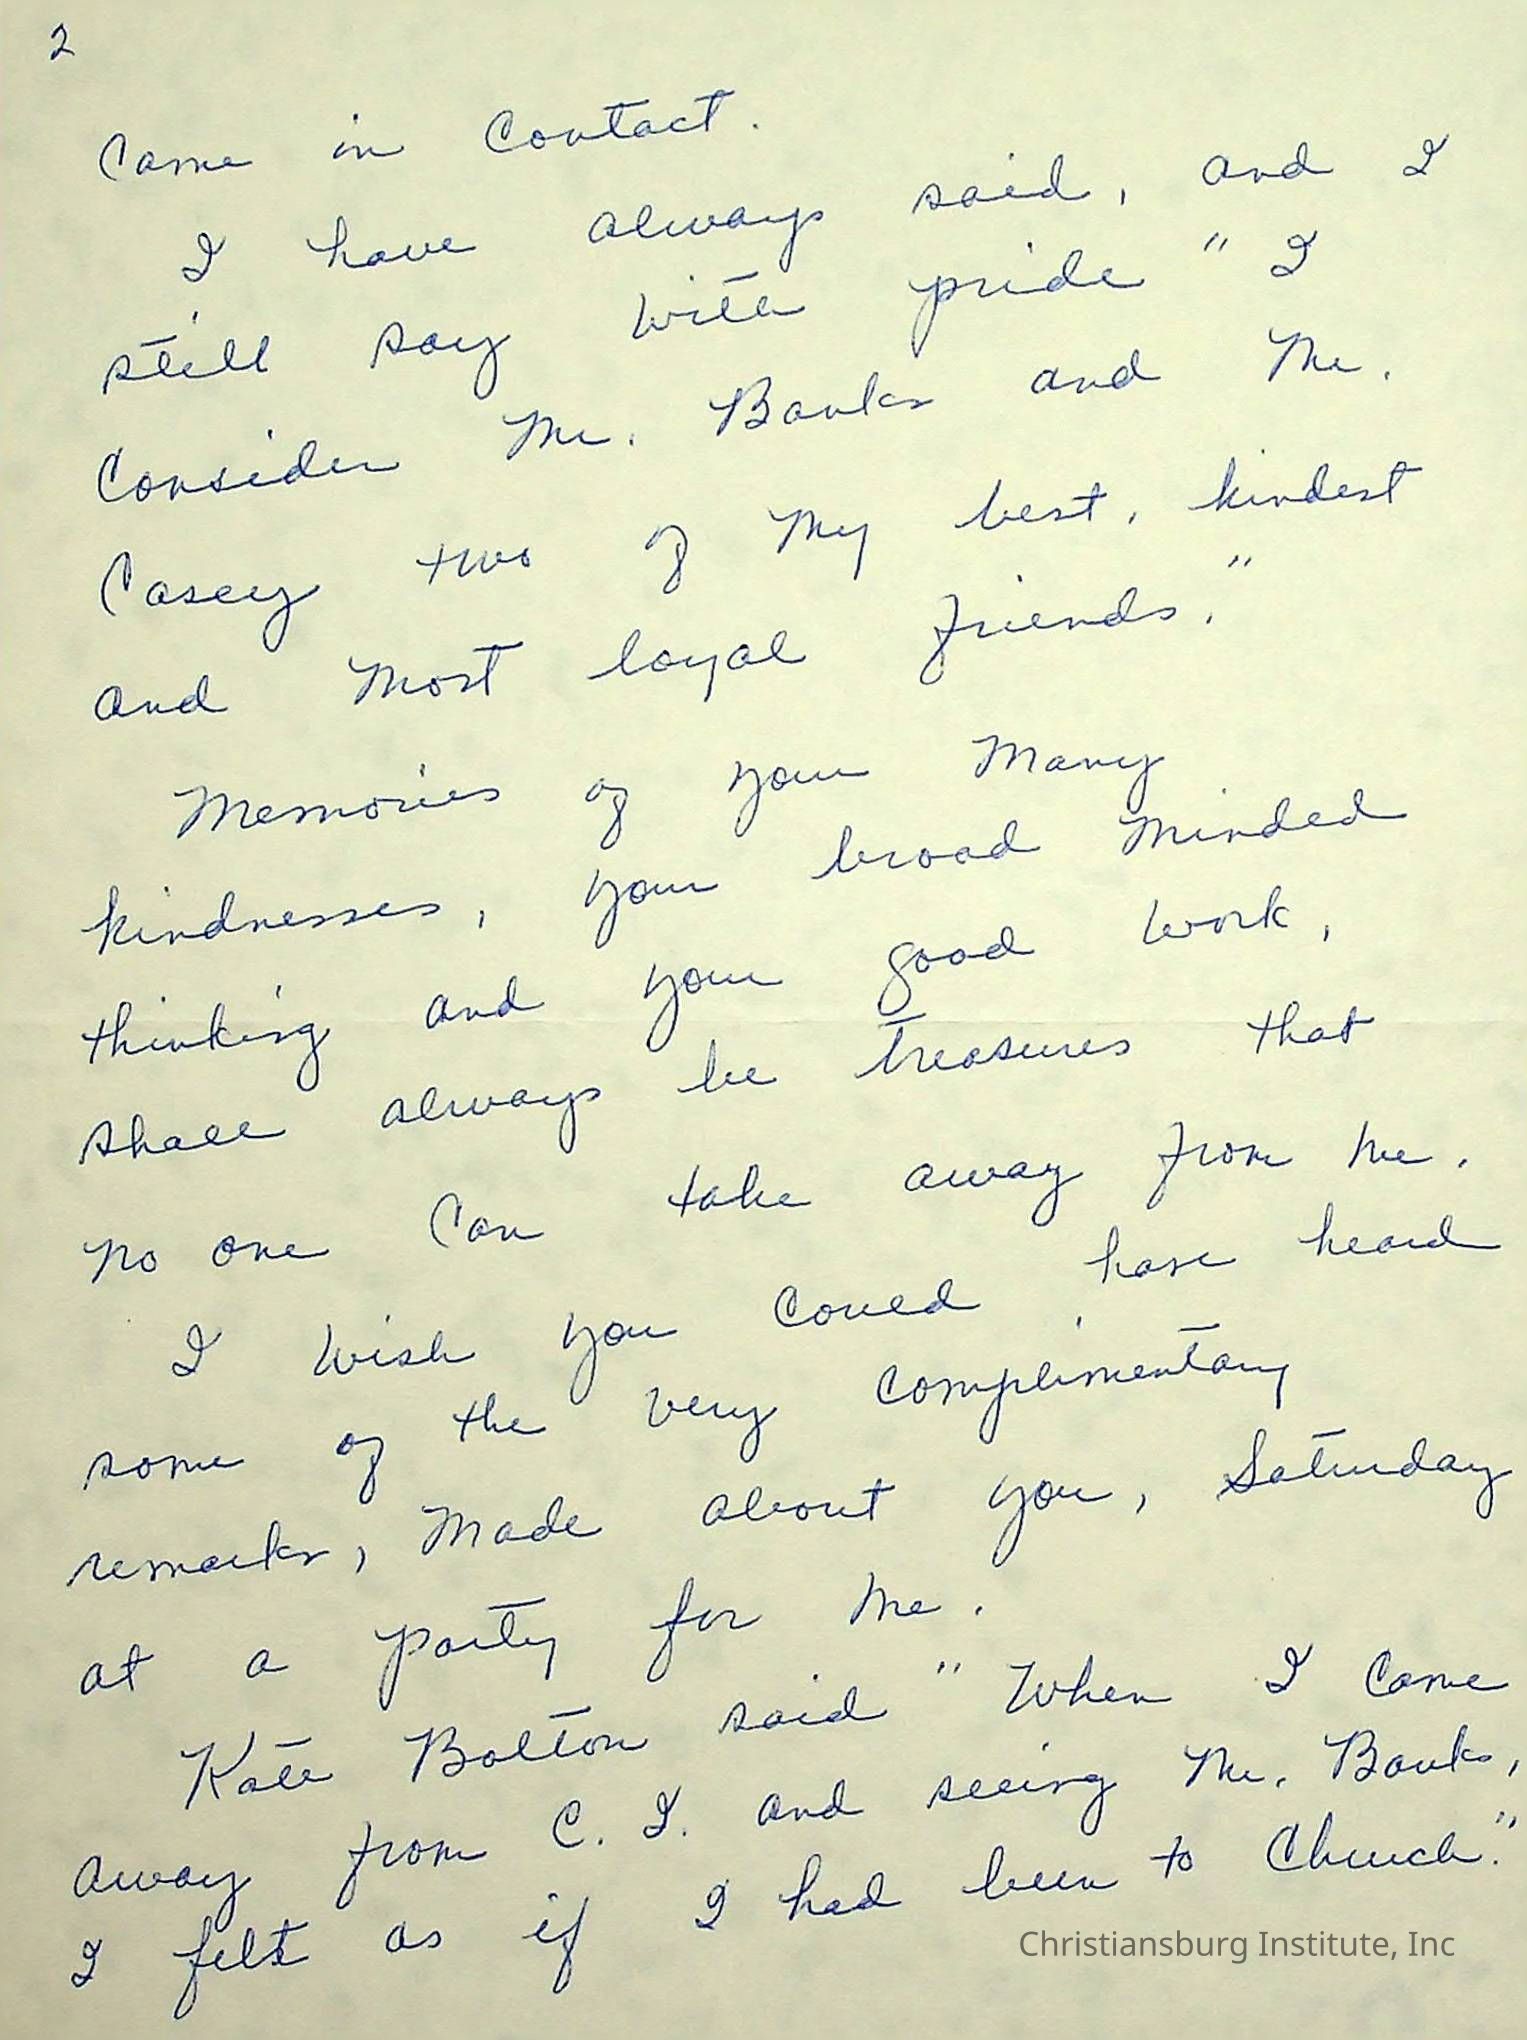 2
came in contact.
I have always said, and I
still say with pride "I
consider Mr. Banks and Mr.
Casey two of my best, kindest
and most loyal friends."
Memories of your many
kindnesses, your broad minded
thinking and your good work,
shall always be treasures that
no one can take away from me.
I wish you could have heard
some of the very complimentary
remarks, made about you, Saturday
at a party for me.
Kate Bolton said "When I came
away from C. I. and seeing Mr. Banks,
I felt as if I had been to Church."
Christiansburg Institute, Inc